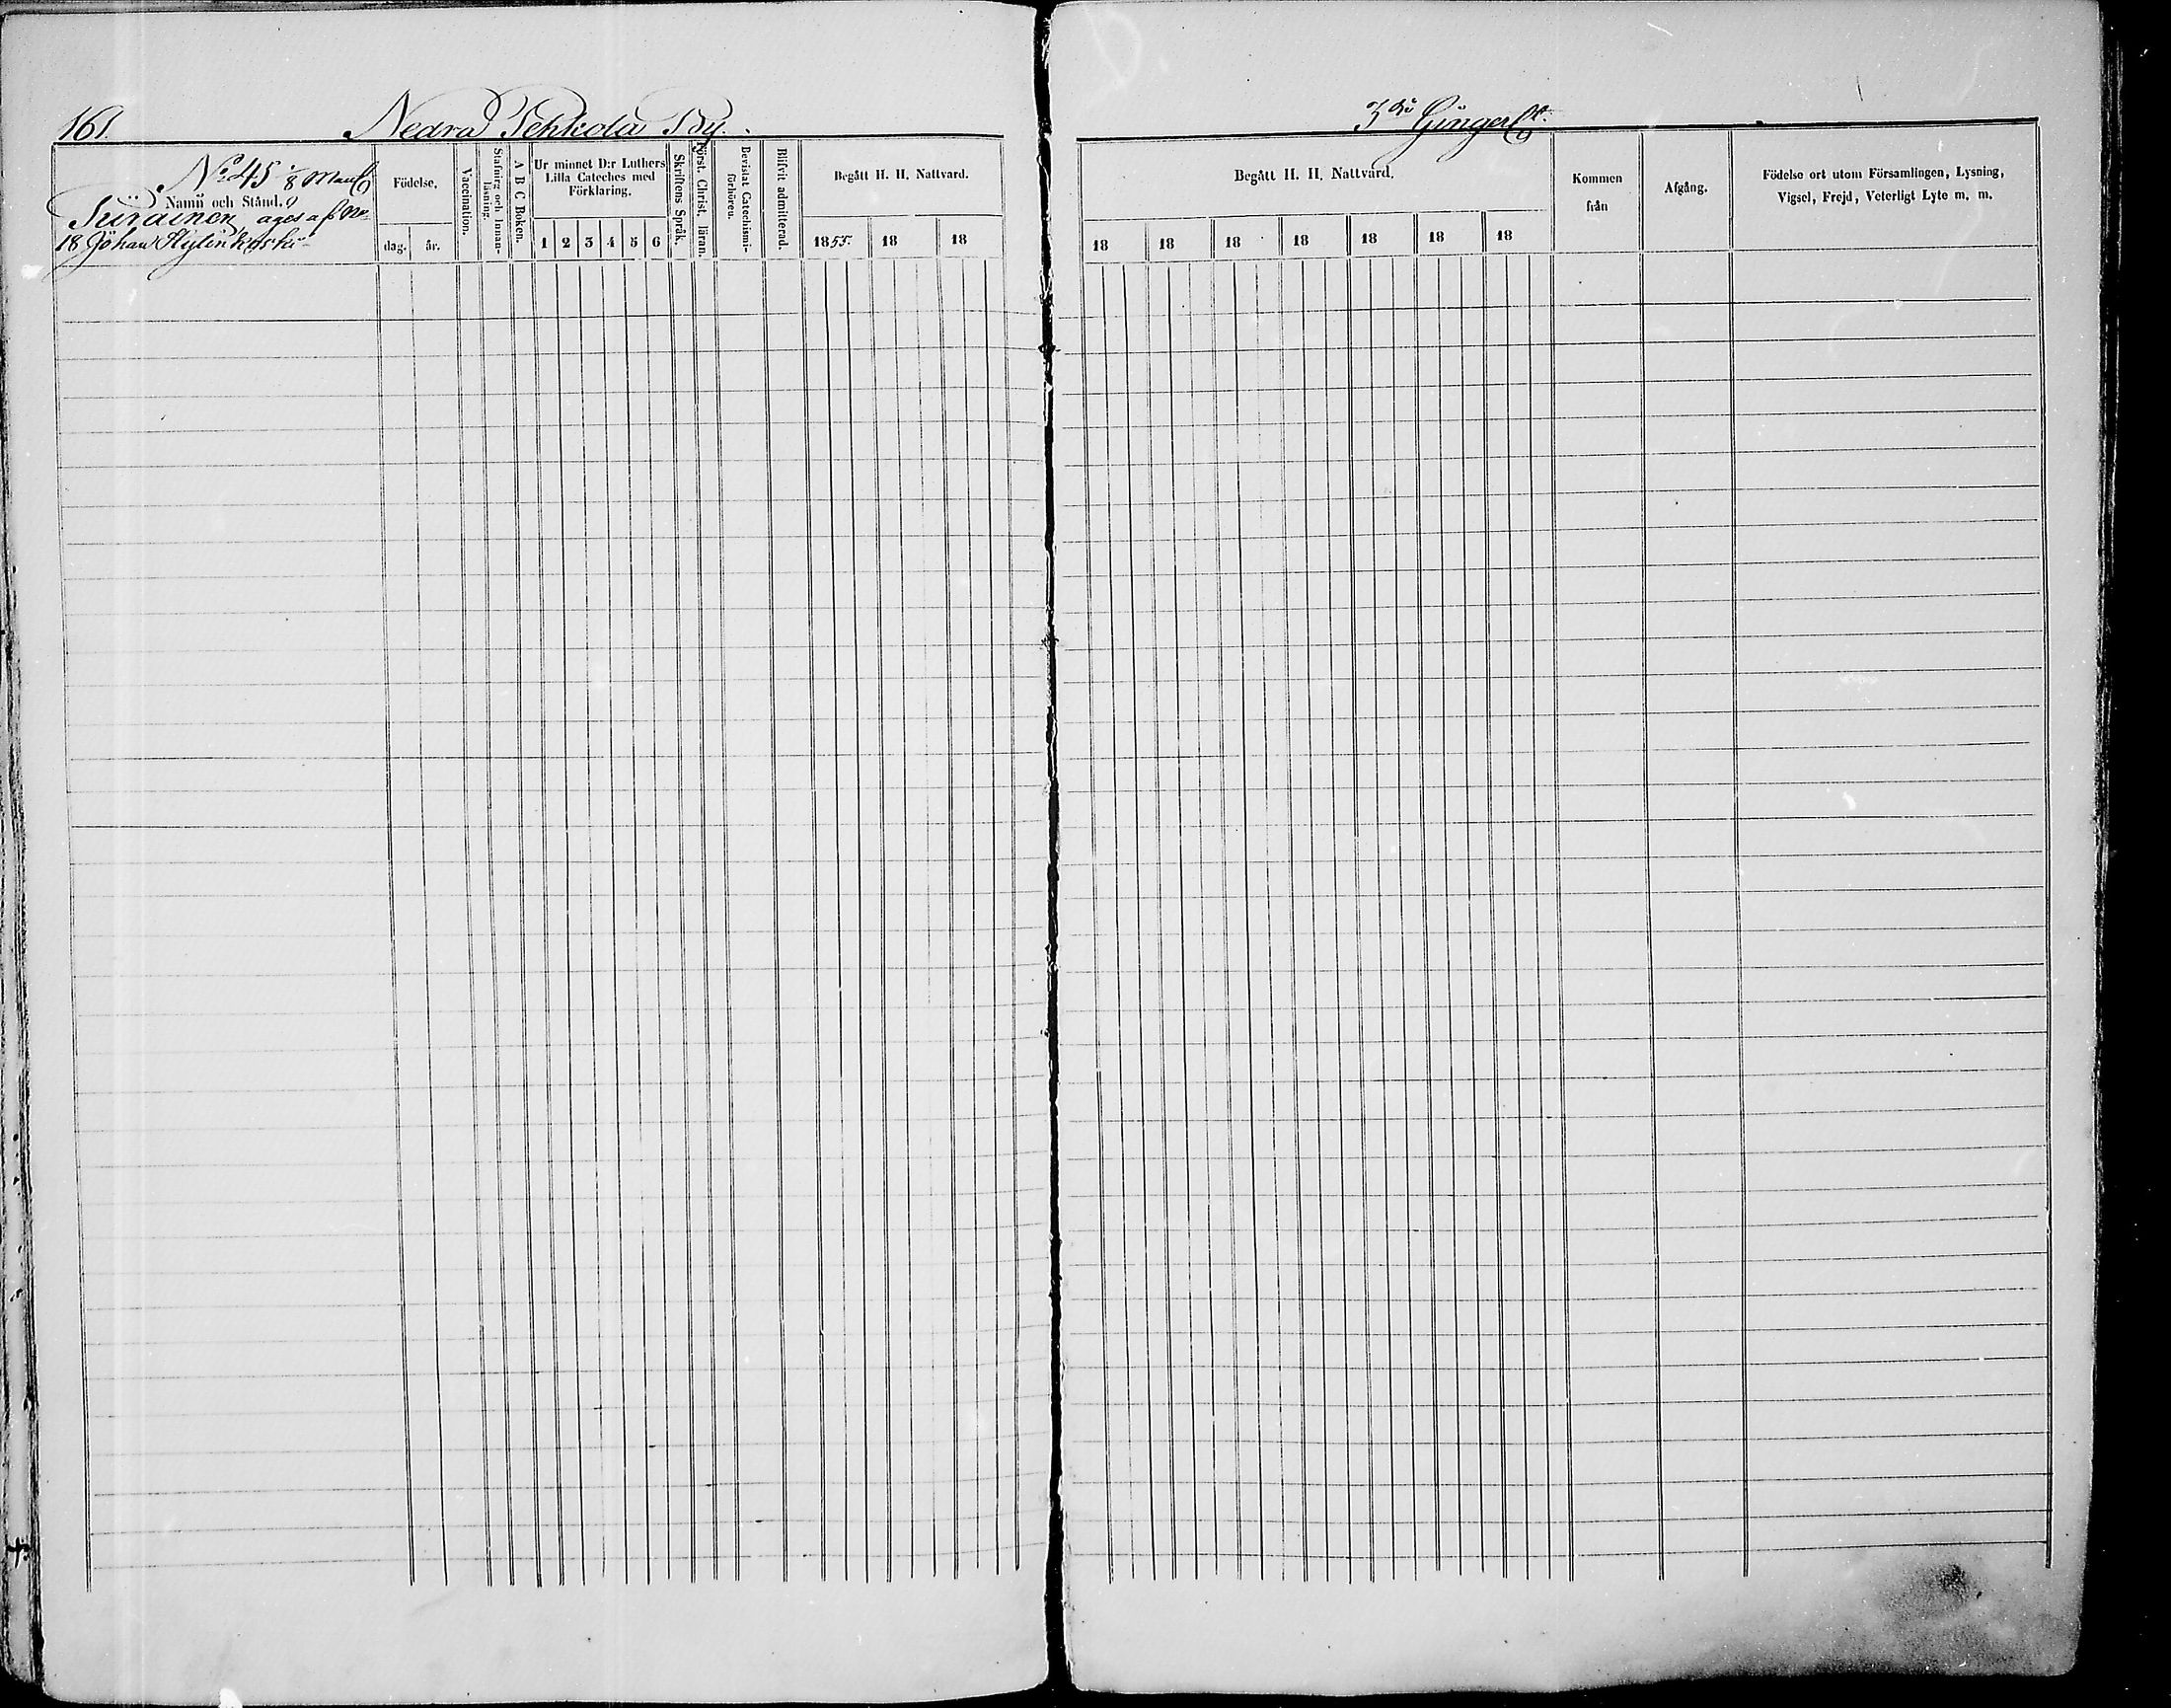 161. Nedra Pehkola By.
No 45 1/8 Mant
Namn och Stånd.
äges af No
18 Johan
Födelse.
dag. år.
Vaccination.
Stafning och Innanläsning.
A B C Boken.
Ur minnet D:r Luthers
Lilla Cateches med
Förklaring.
1 2 3 4 5 6
Skriftens Språk.
Först. Christ. läran.
Bevistat Catechismiförhören.
Blifvit admitterad.
Begått H. H. Nattvard.
1855. 18 18
3die
Begått H. H. Nattvard.
18 18 18 18 18 18 18
Kommen
från
Afgång.
Födelse ort utom Församlingen, Lysning,
Vigsel, Frejd, Veterligt Lyte m. m.